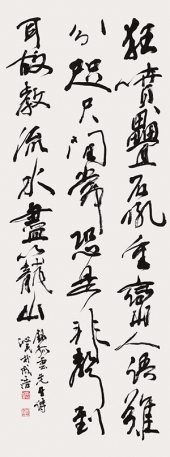 狂噴疊石吼重巒人語難
分咫尺間常恐是非聲到
耳故教流水盡籠山
錄孤雲先生詩